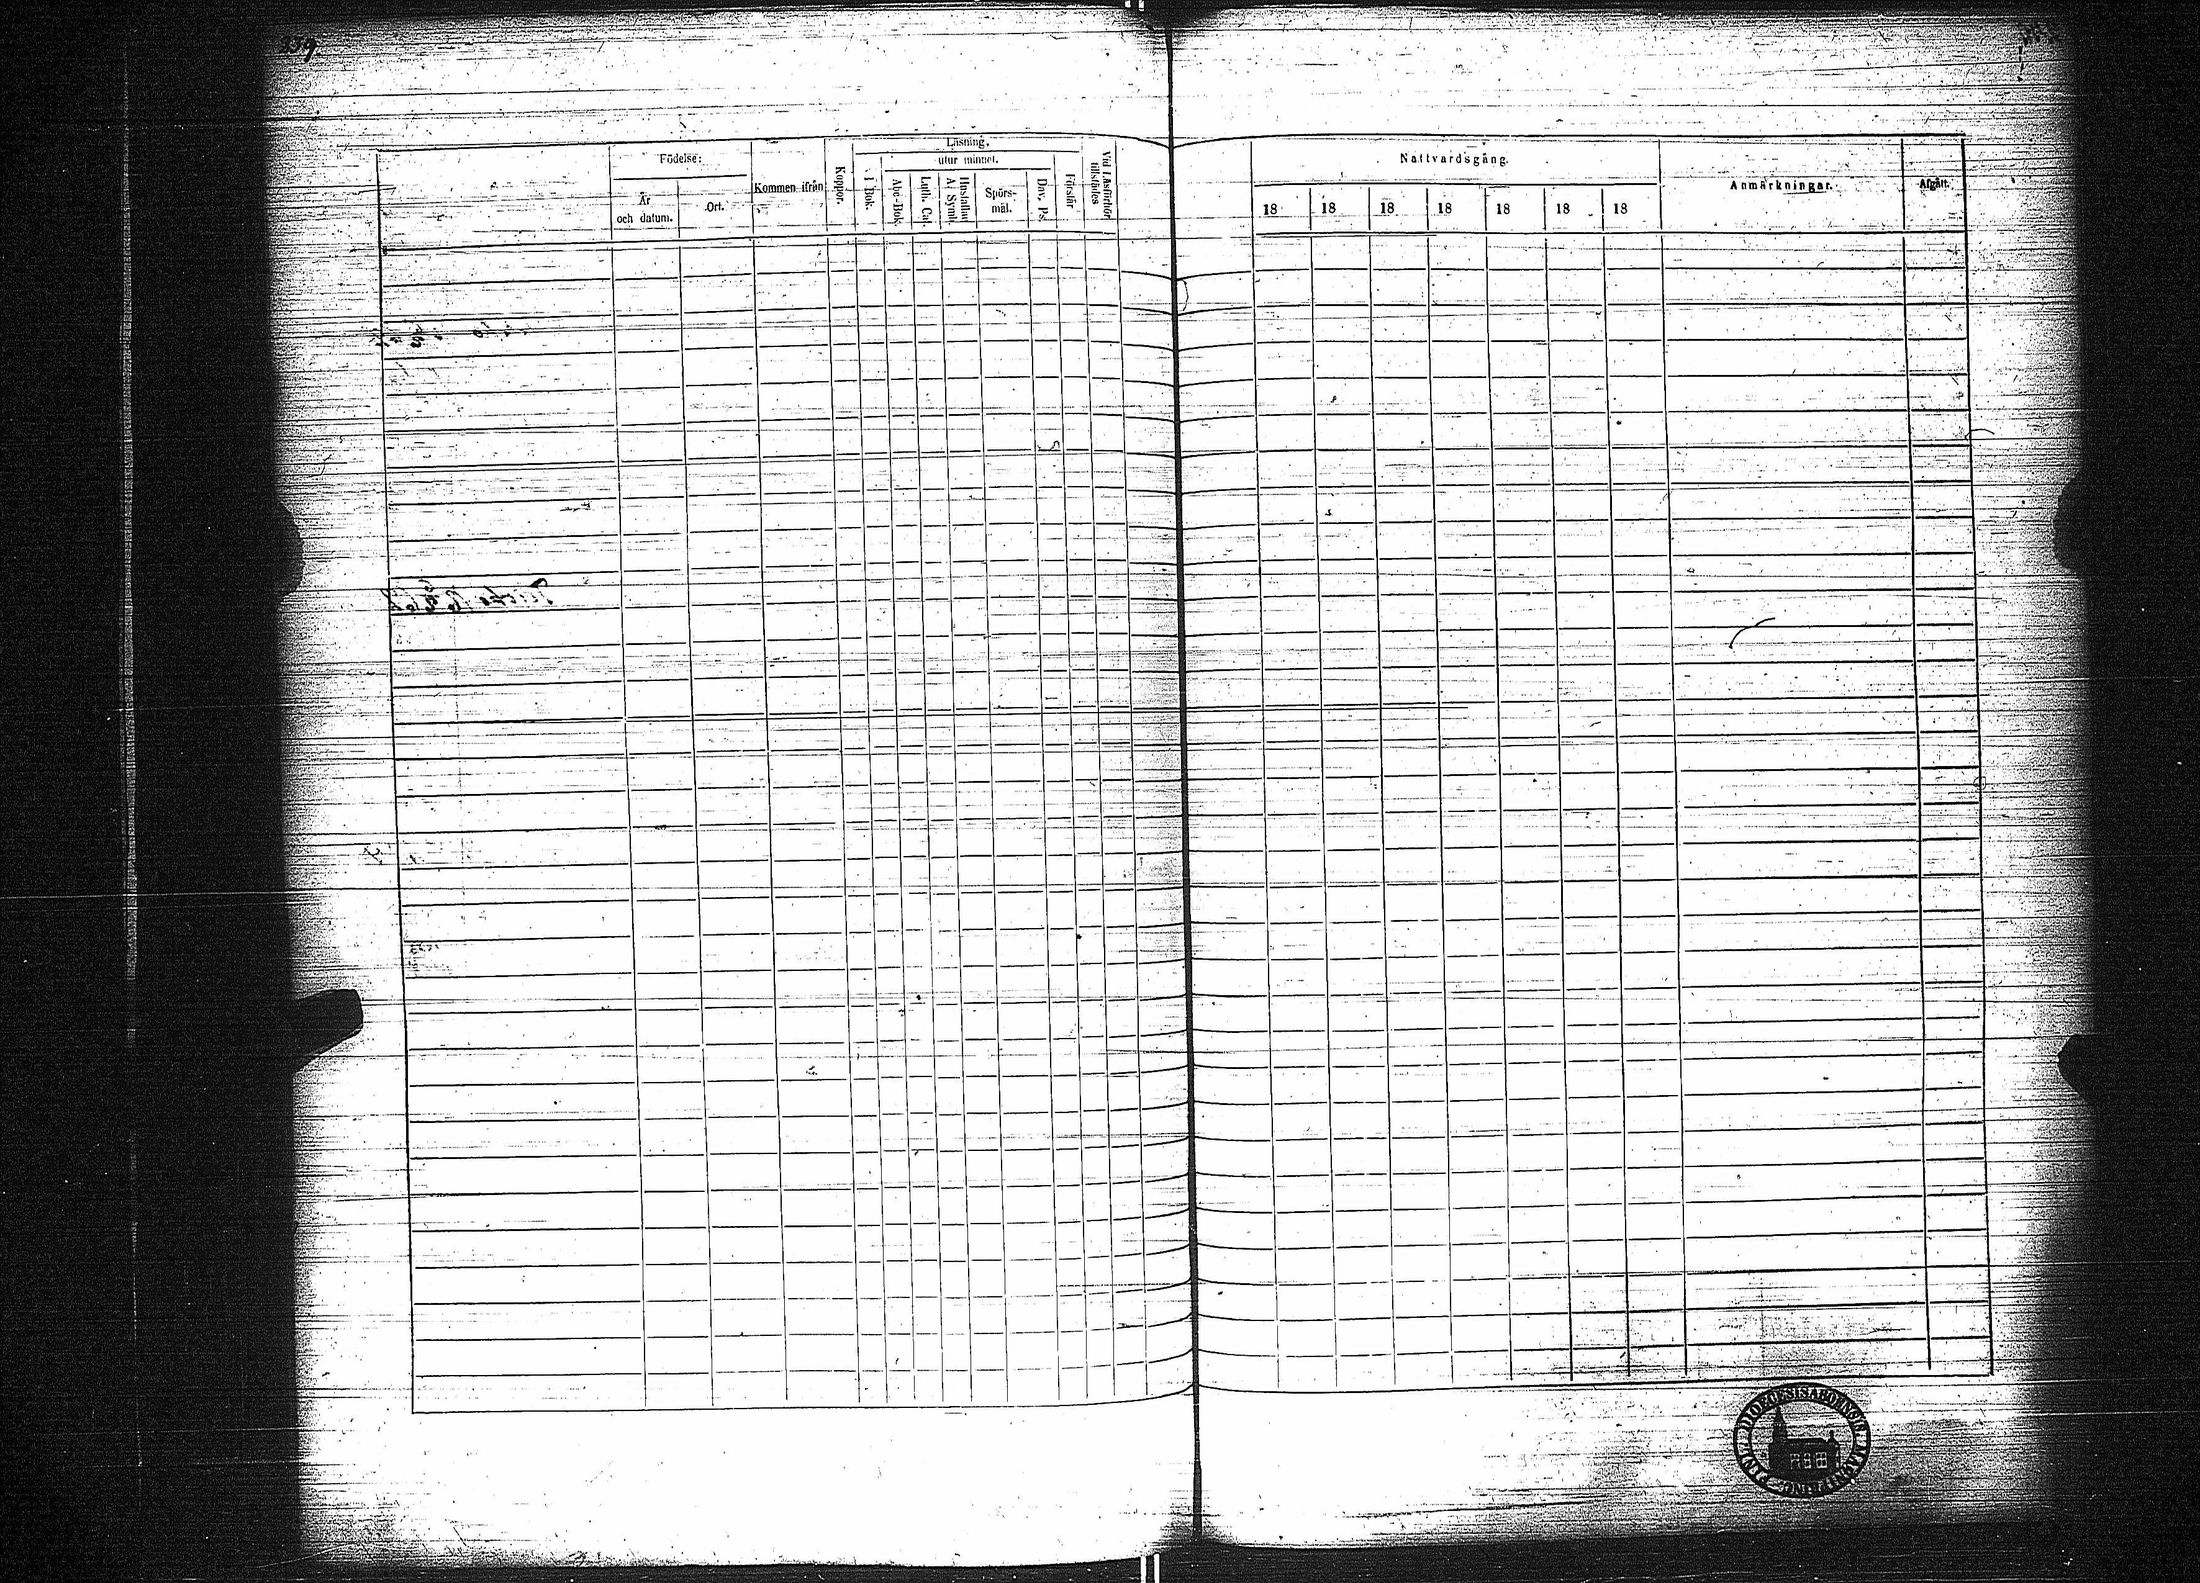 Födelse:
År
och datum.
Ort.
Kommen ifrån
Koppor.
Läsning,
utur minnet.
I Bok.
Abc-Bok.
Luth. Cat.
Hustaflan
A. Symb.
Spörs-
mål.
Dav. Ps.
Förstår
Vid Läsförhör
tillstädes
Nattvardsgång.
18 18 18 18 18 18 18
Anmärkningar.
Afgått.